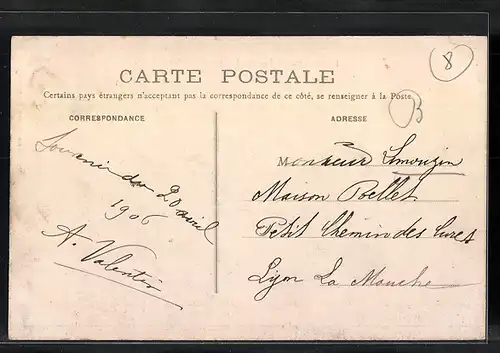 8
CARTE POSTALE
Certains pays étrangers n'acceptant pas la correspondance de ce côté, se renseigner à la Poste.
B
CORRESPONDANCE
Souvenir du 20 avril
1906
A. Valentin
ADRESSE
Monsieur Limouzin
Maison Pellet
Petit Chemin des Cures
Lyon La Mouche